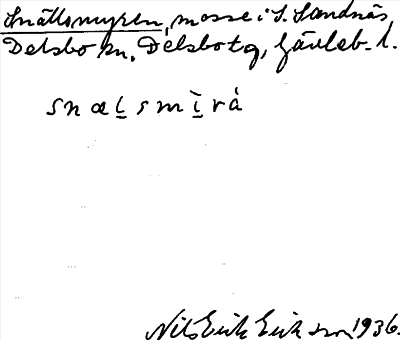 Snällsmyren, mosse i S. Sandnäs
Delsbo sn, Delsbo tg, Gävleb. l.
snæl̲smì̲rá
Nils Erik Erikson 1936.